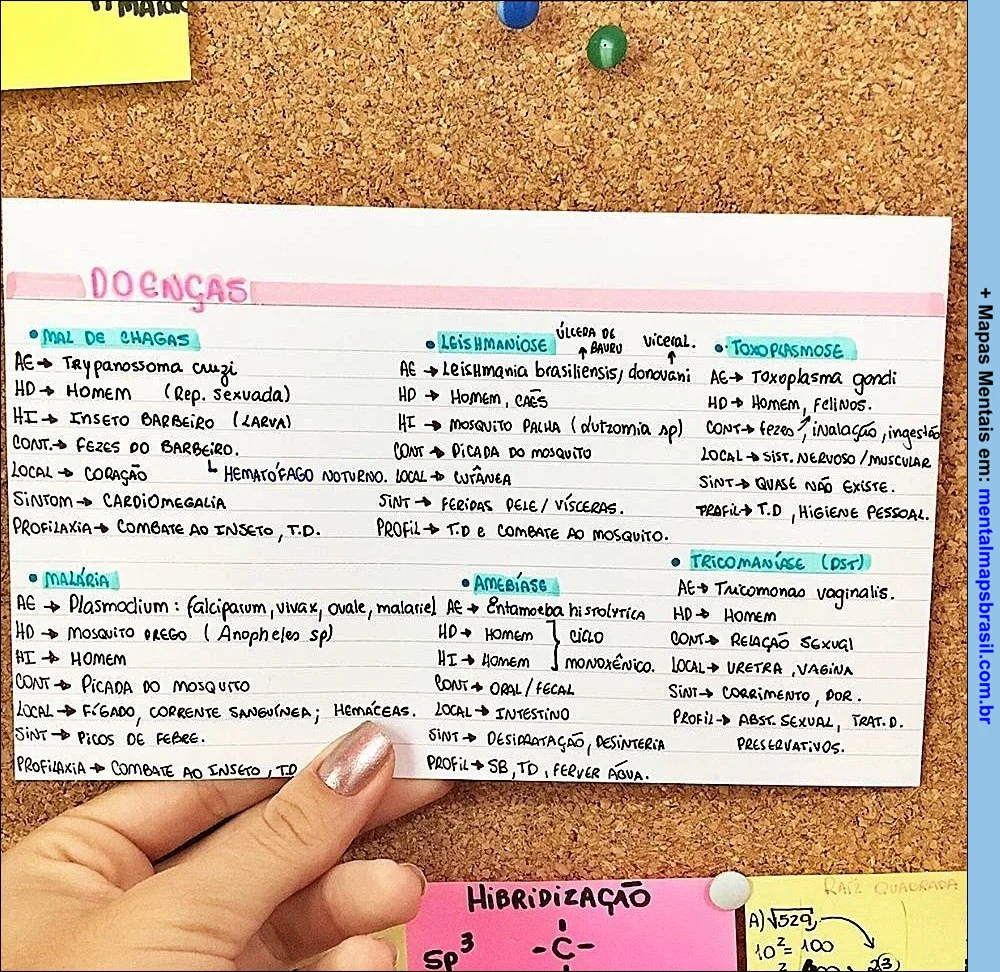 DOENÇAS
• MAL DE CHAGAS
AE → Trypanossoma cruzi
HD → HOMEM (Rep. sexuada)
HI → INSETO BARBEIRO (LARVA)
CONT. → FEZES DO BARBEIRO.
↳ HEMATÓFAGO NOTURNO.
LOCAL → CORAÇÃO
SINTOM → CARDIOMEGALIA
PROFILAXIA → COMBATE AO INSETO, T.D.
• LEISHMANIOSE
ÚLCERA DE BAURU
viceral.
AE → Leishmania brasiliensis/donovani
HD → HOMEM, CAÊS
HI → MOSQUITO PALHA (lutzomia sp)
CONT → PICADA DO MOSQUITO
LOCAL → CUTÂNEA
SINT → FERIDAS PELE/VÍSCERAS.
PROFIL → T.D e COMBATE AO MOSQUITO.
• TOXOPLASMOSE
AE → Toxoplasma gondi
HD → HOMEM, FELINOS.
CONT → fezes, inalação, ingestão
LOCAL → SIST. NERVOSO/MUSCULAR
SINT → QUASE NÃO EXISTE.
PROFIL → T.D, HIGIENE PESSOAL.
• MALÁRIA
AE → Plasmodium: falciparum, vivax, ovale, malariel
HD → MOSQUITO PREGO (Anopheles sp)
HI → HOMEM
CONT → PICADA DO MOSQUITO
LOCAL → FÍGADO, CORRENTE SANGUÍNEA; HEMÁCEAS.
SINT → PICOS DE FEBRE.
PROFILAXIA → COMBATE AO INSETO, T.D
• AMEBÍASE
AE → Entamoeba histolytica
HD → HOMEM
HI → HOMEM
CICLO
MONOXÊNICO.
CONT → ORAL/FECAL
LOCAL → INTESTINO
SINT → DESIDRATAÇÃO, DESINTERIA
PROFIL → SB, TD, FERVER ÁGUA.
• TRICOMANÍASE (DST)
AE → Tricomonas vaginalis.
HD → HOMEM
CONT → RELAÇÃO SEXUAL
LOCAL → URETRA, VAGINA
SINT → CORRIMENTO, DOR.
PROFIL → ABST. SEXUAL, TRAT. D.
PRESERVATIVOS.
HIBRIDIZAÇÃO
sp³
-C-
RAIZ QUADRADA
A) √529
10² = 100
+ Mapas Mentais em: mentalmapsbrasil.com.br